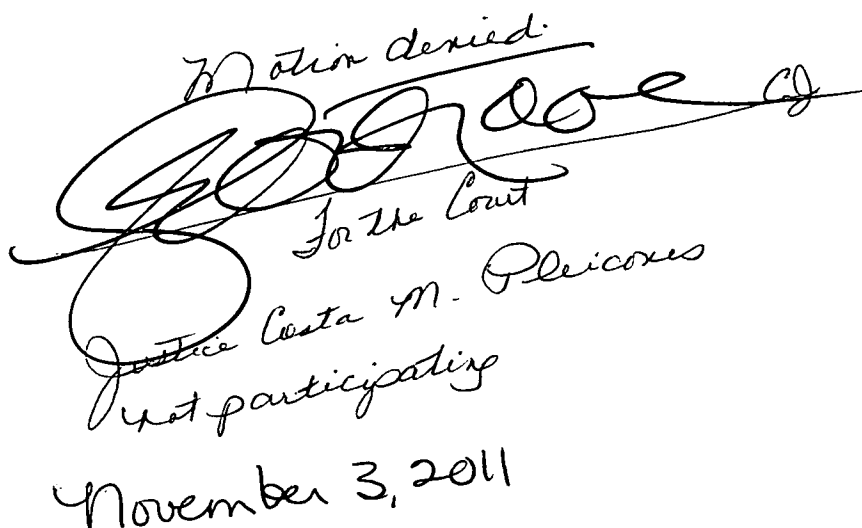 Motion denied.
CJ
For the Court
Justice Costa M. Pleicones
not participating
November 3, 2011